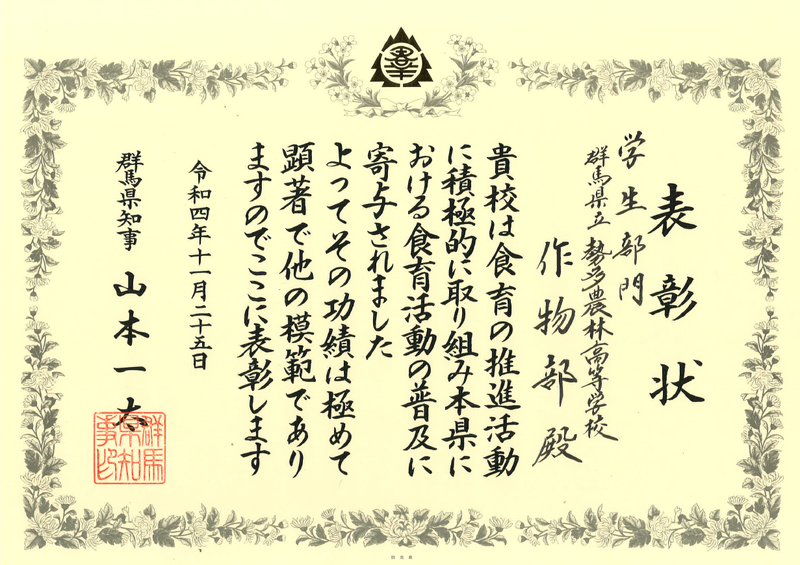 表彰状
学生部門
群馬県立勢多農林高等学校
作物部殿
貴校は食育の推進活動
に積極的に取り組み本県に
おける食育活動の普及に
寄与されました
よってその功績は極めて
顕著で他の模範であり
ますのでここに表彰します
令和四年十一月二十五日
群馬県知事 山本一太
群馬
県知
事印